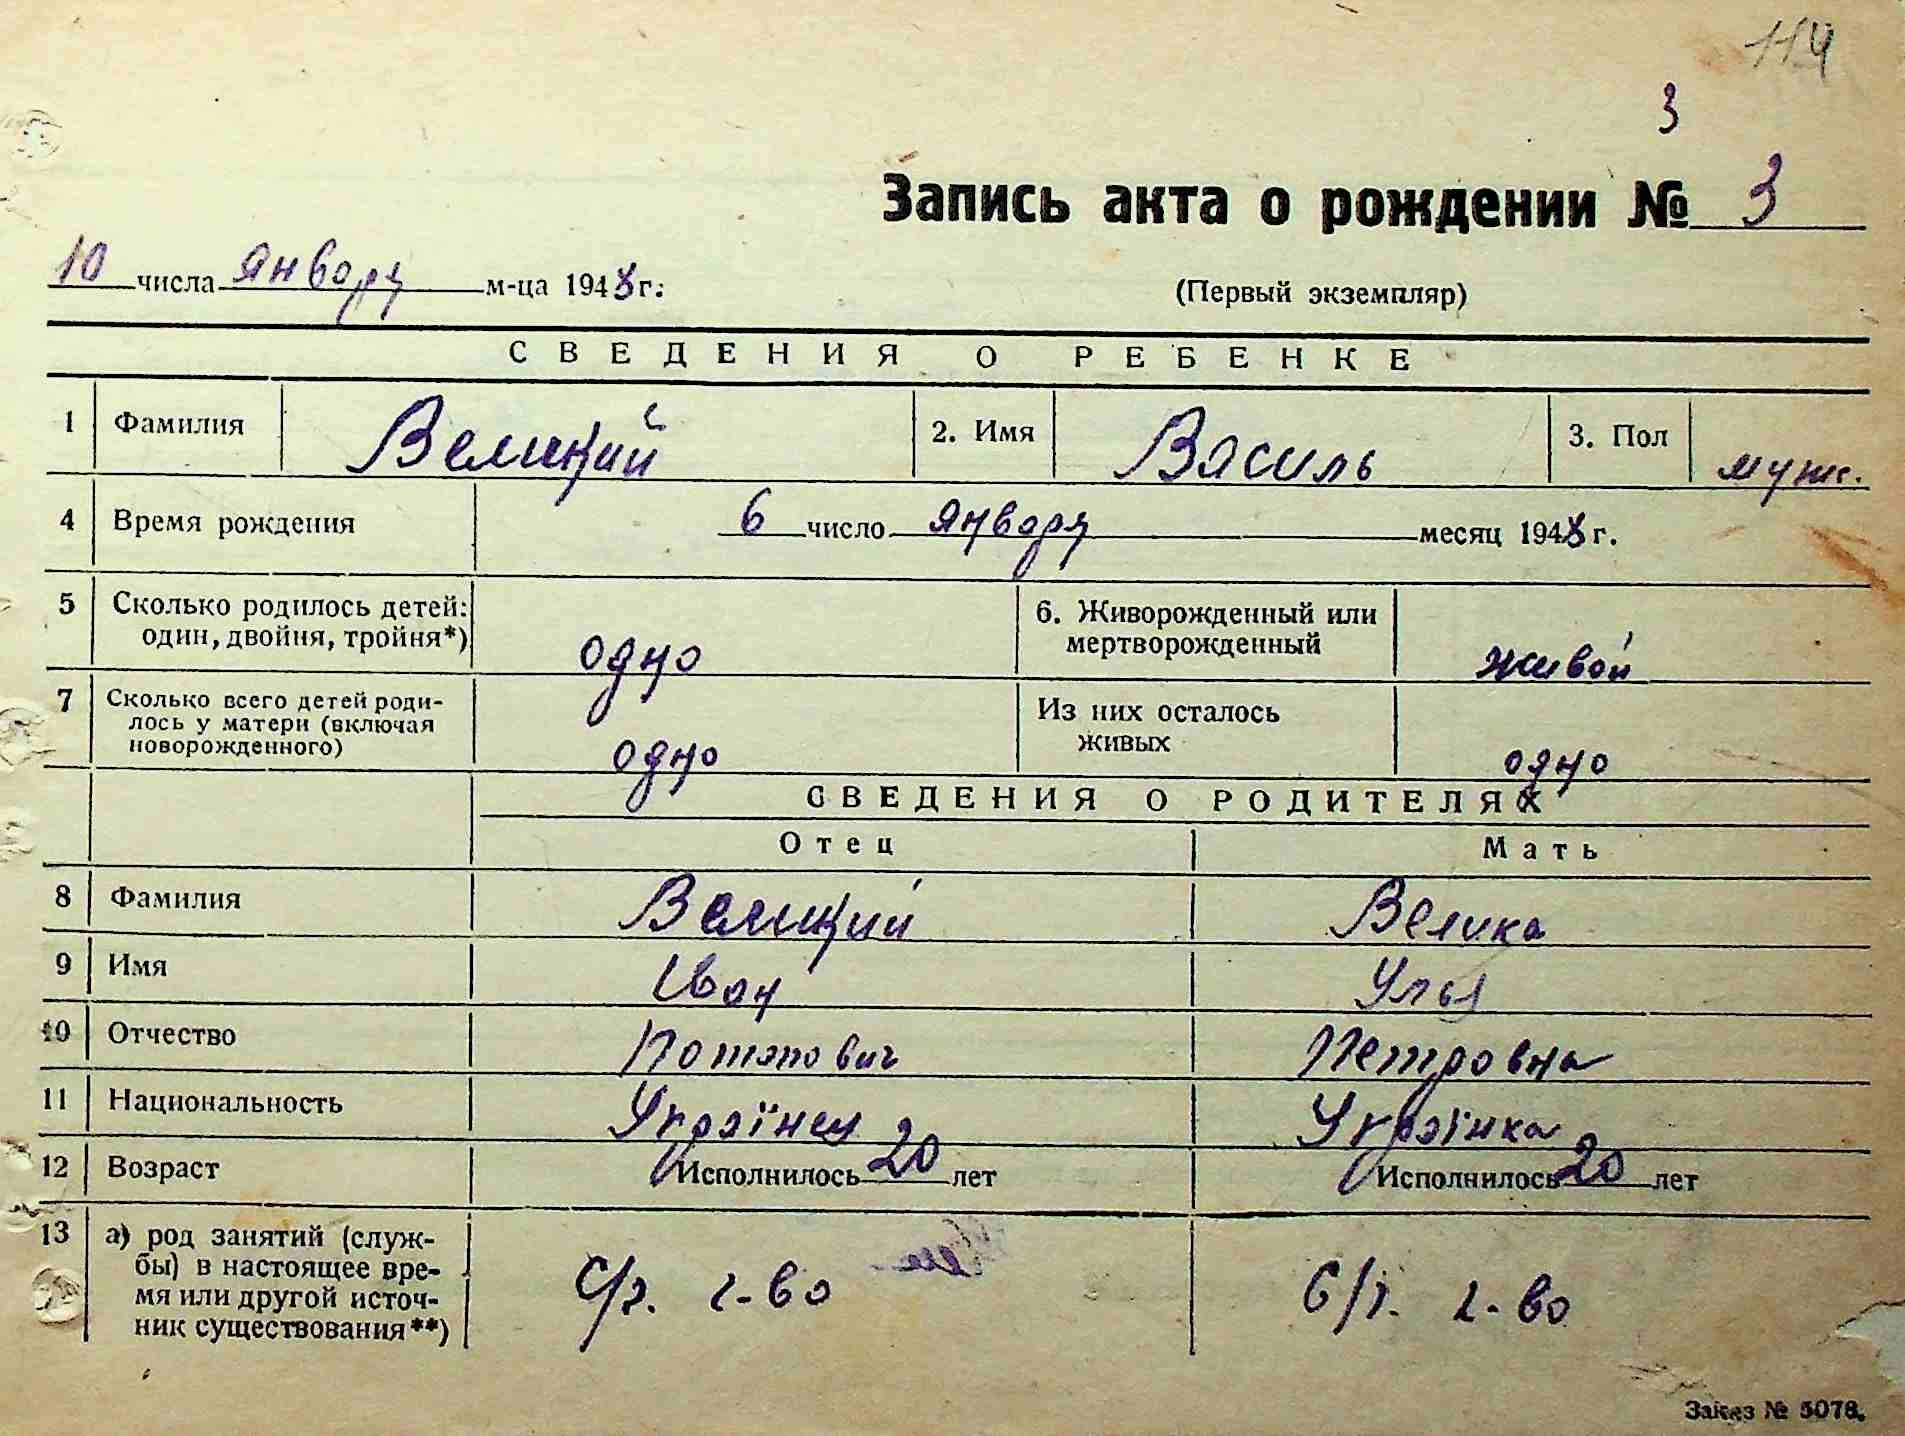 114
3
Запись акта о рождении № 3
10 числа января м-ца 1948 г.
(Первый экземпляр)
СВЕДЕНИЯ О РЕБЕНКЕ
1 Фамилия Великий 2. Имя Василь 3. Пол муж.
4 Время рождения 6 число января месяц 1948 г.
5 Сколько родилось детей: один, двойня, тройня*) одно 6. Живорожденный или мертворожденный живой
7 Сколько всего детей роди-
лось у матери (включая
новорожденного) одно Из них осталось живых одно
СВЕДЕНИЯ О РОДИТЕЛЯХ
Отец Мать
8 Фамилия Великий Велика
9 Имя Иван Улья
10 Отчество Потапович Петровна
11 Национальность Українец Українка
12 Возраст Исполнилось 20 лет Исполнилось 20 лет
13 а) род занятий (служ-
бы) в настоящее вре-
мя или другой источ-
ник существования**) С/г. г-во С/г. г-во
Заказ № 5078.